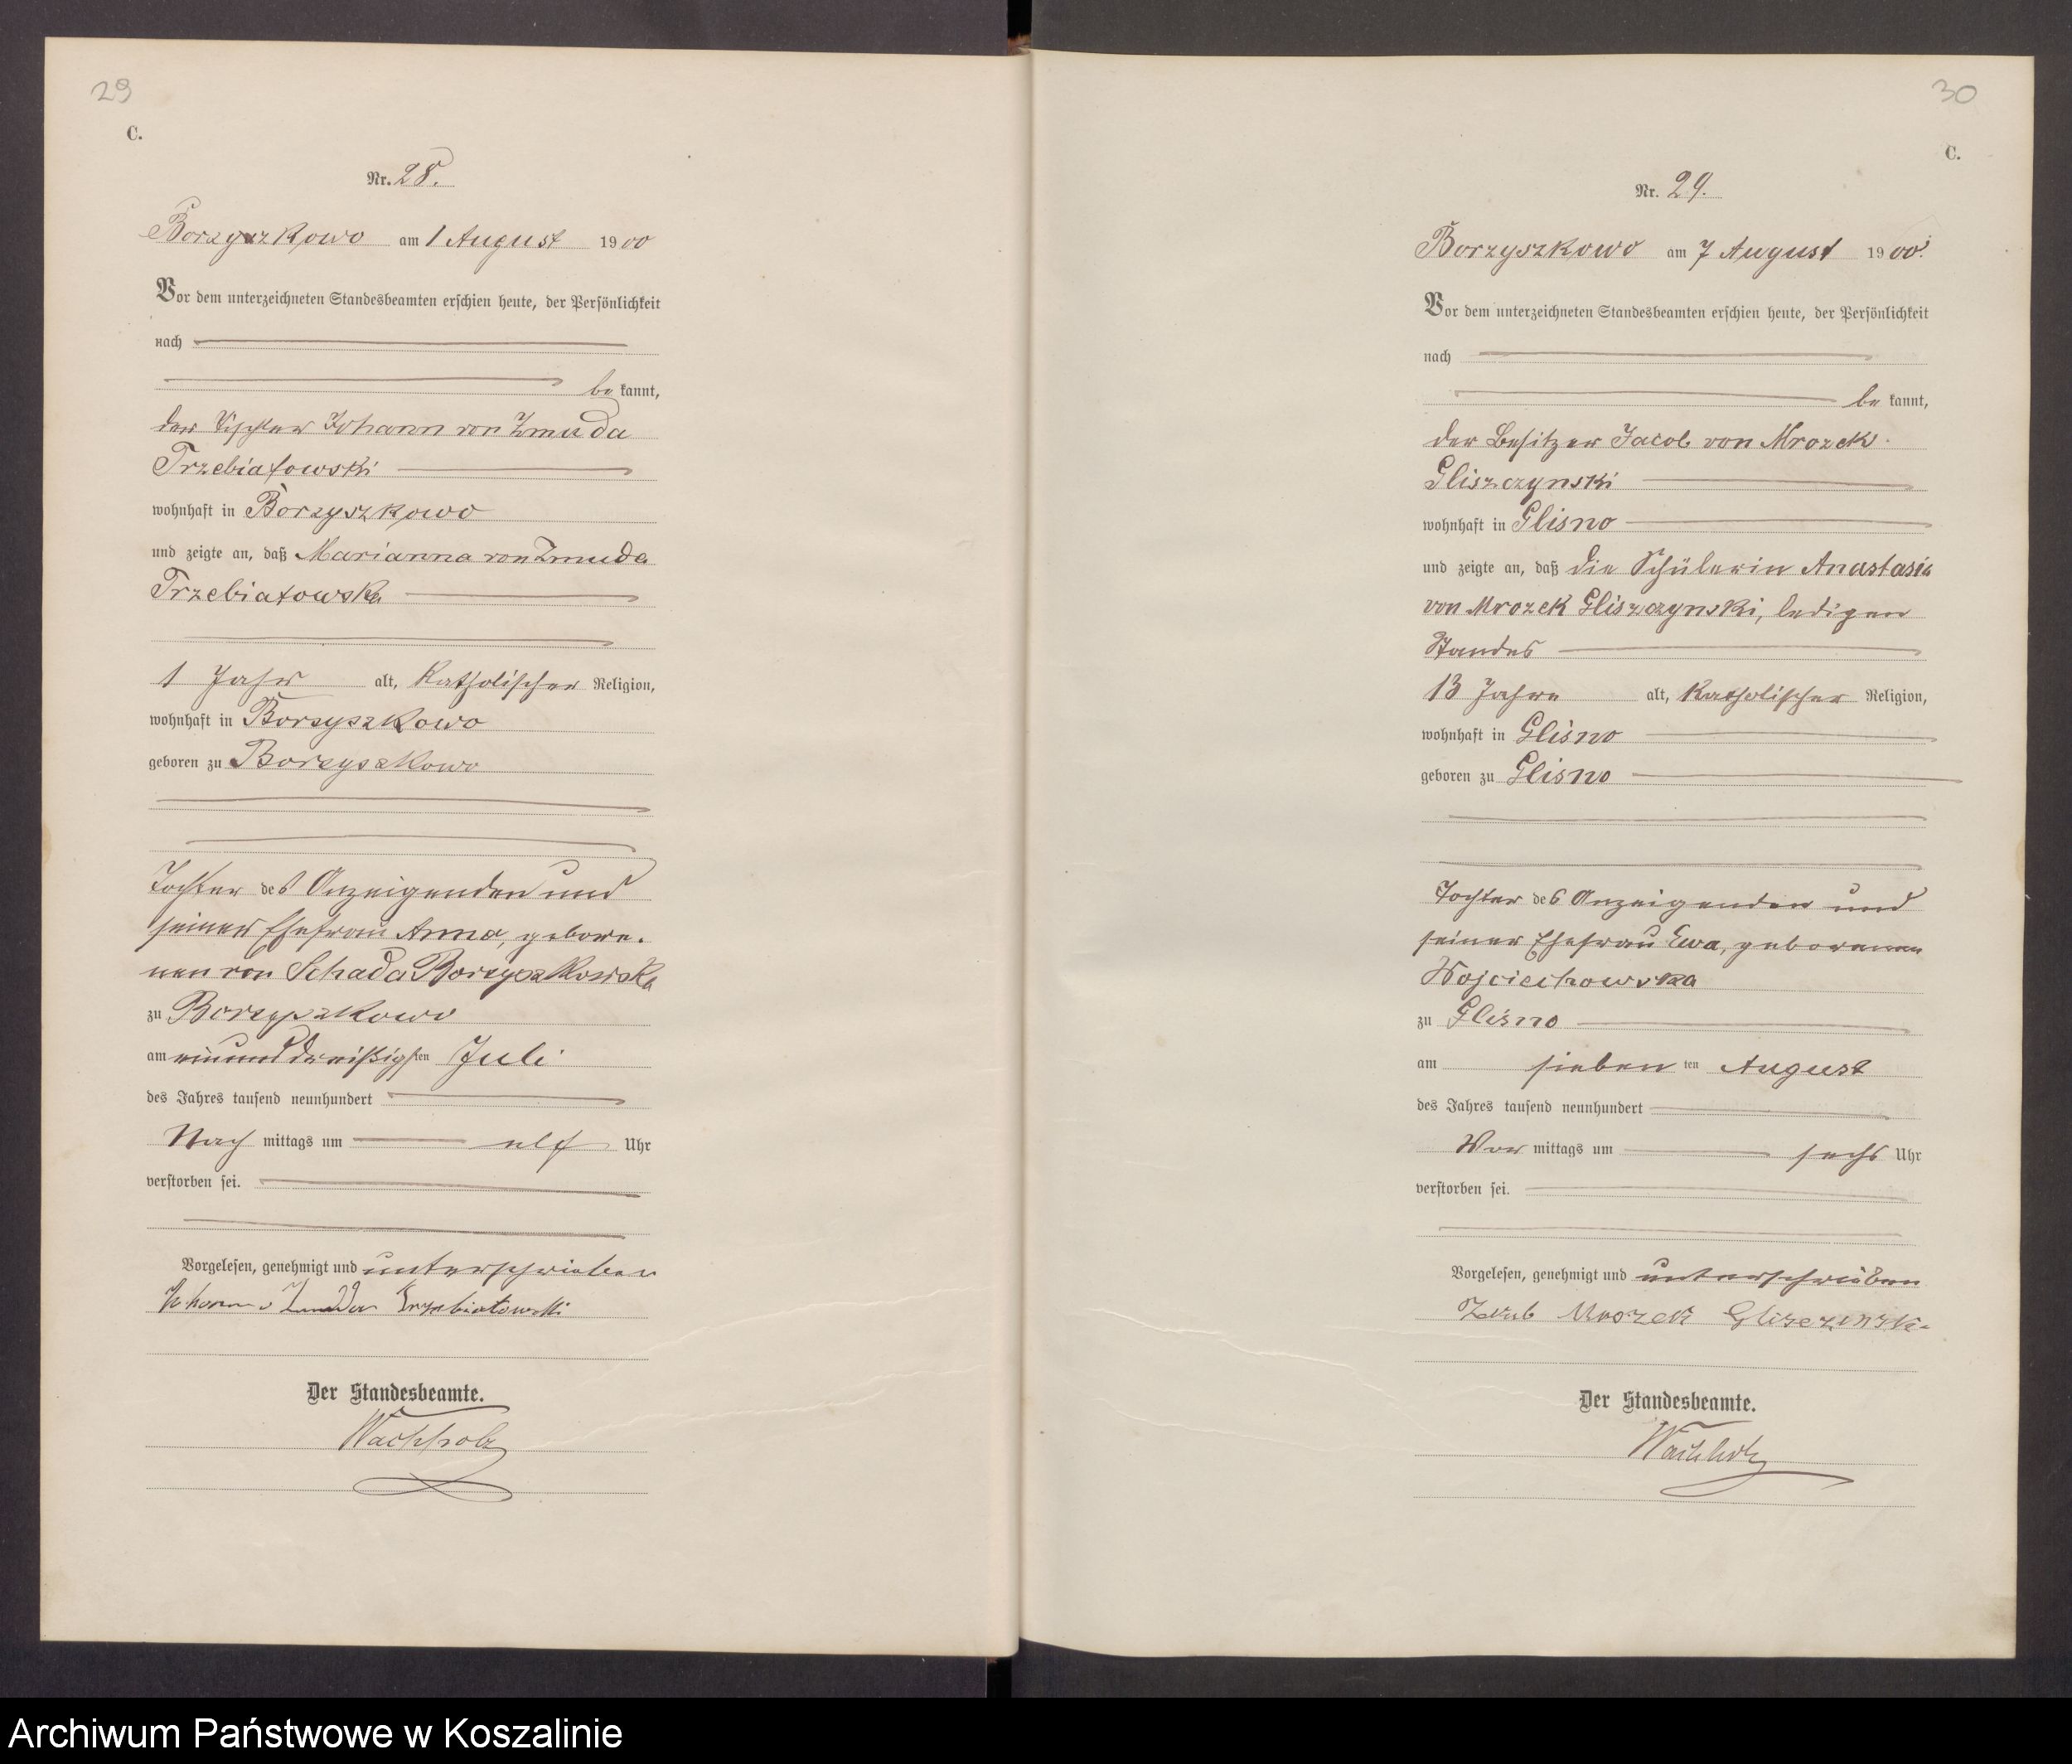 29
C.
Nr. 28.
Borzyszkowo am 1 August 1900
Vor dem unterzeichneten Standesbeamten erschien heute, der Persönlichkeit
nach
be kannt,
der Tischler Johann von Zmuda
Trzebiatowski
wohnhaft in Borzyszkowo
und zeigte an, daß Marianna von Zmuda
Trzebiatowska
1 Jahr alt, katholischer Religion,
wohnhaft in Borzyszkowo
geboren zu Borzyszkowo
Tochter des Anzeigenden und
seiner Ehefrau Anna, gebore-
nen von Schada Borzyszkowska
zu Borzyszkowo
am einunddreißigsten Juli
des Jahres tausend neunhundert
Nach mittags um elf Uhr
verstorben sei.
Vorgelesen, genehmigt und unterschrieben
Johann v Zmuda Trzebiatowski
Der Standesbeamte.
Wachholz
30
C.
Nr. 29.
Borzyszkowo am 7 August 1900.
Vor dem unterzeichneten Standesbeamten erschien heute, der Persönlichkeit
nach
be kannt,
der Besitzer Jacob von Mrozek
Gliszczynski
wohnhaft in Glisno
und zeigte an, daß die Schülerin Anastasia
von Mrozek Gliszczynski, ledigen
Standes
13 Jahre alt, katholischer Religion,
wohnhaft in Glisno
geboren zu Glisno
Tochter des Anzeigenden und
seiner Ehefrau Ewa, geborenen
Wojciechowska
zu Glisno
am siebenten August
des Jahres tausend neunhundert
Vor mittags um sechs Uhr
verstorben sei.
Vorgelesen, genehmigt und unterschrieben
Jakub Mrozek Gliszczinski
Der Standesbeamte.
Wachholz
Archiwum Państwowe w Koszalinie